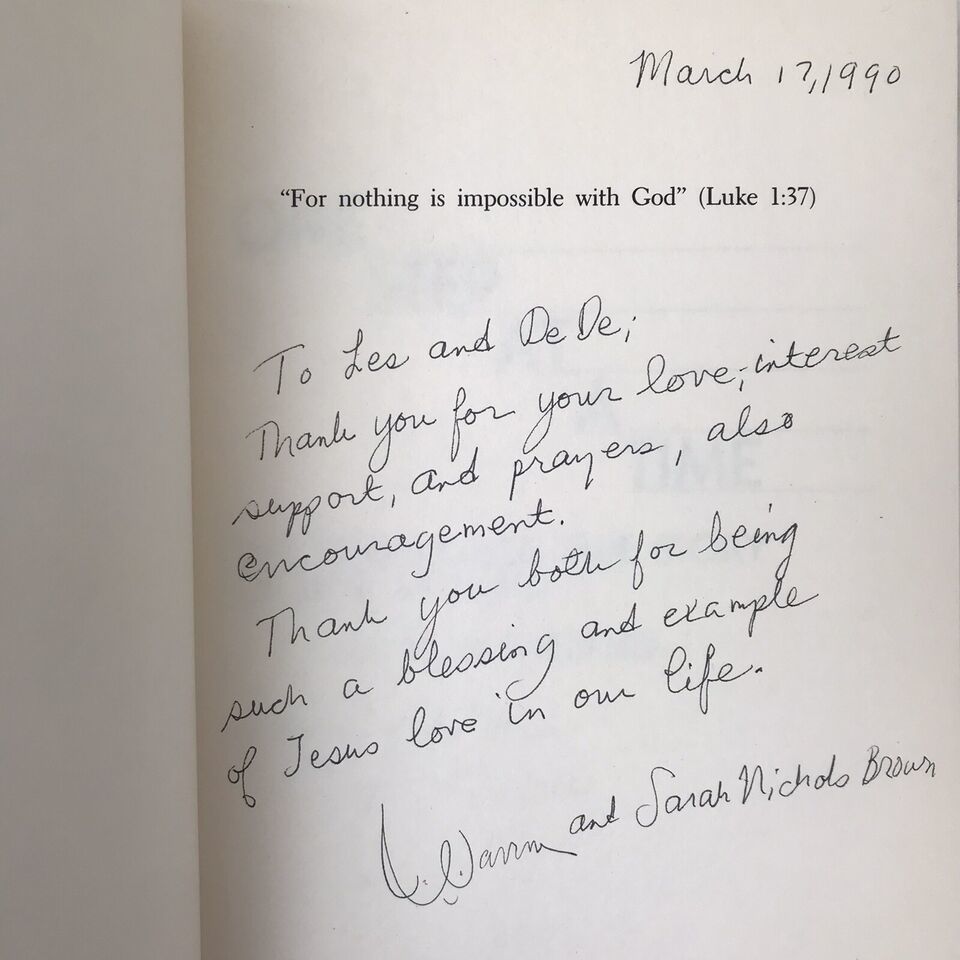 March 17, 1990
“For nothing is impossible with God” (Luke 1:37)
To Les and DeDe;
Thank you for your love, interest
support, and prayers, also
encouragement.
Thank you both for being
such a blessing and example
of Jesus love in our life.
Warren and Sarah Nichols Brown